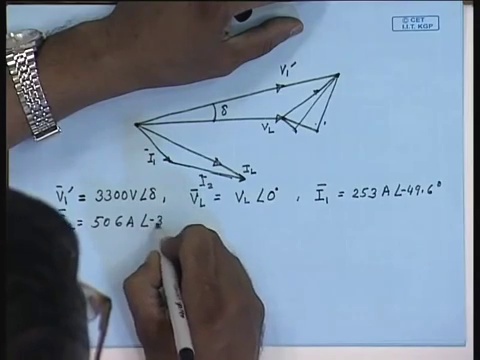 © CET
I.I.T. KGP
V₁′
δ
V_L
I₁
I_L
I₂
V̄₁′ = 3300V∠δ, V̄_L = V_L∠0°, Ī₁ = 253A∠-49.6°
= 506A∠-3